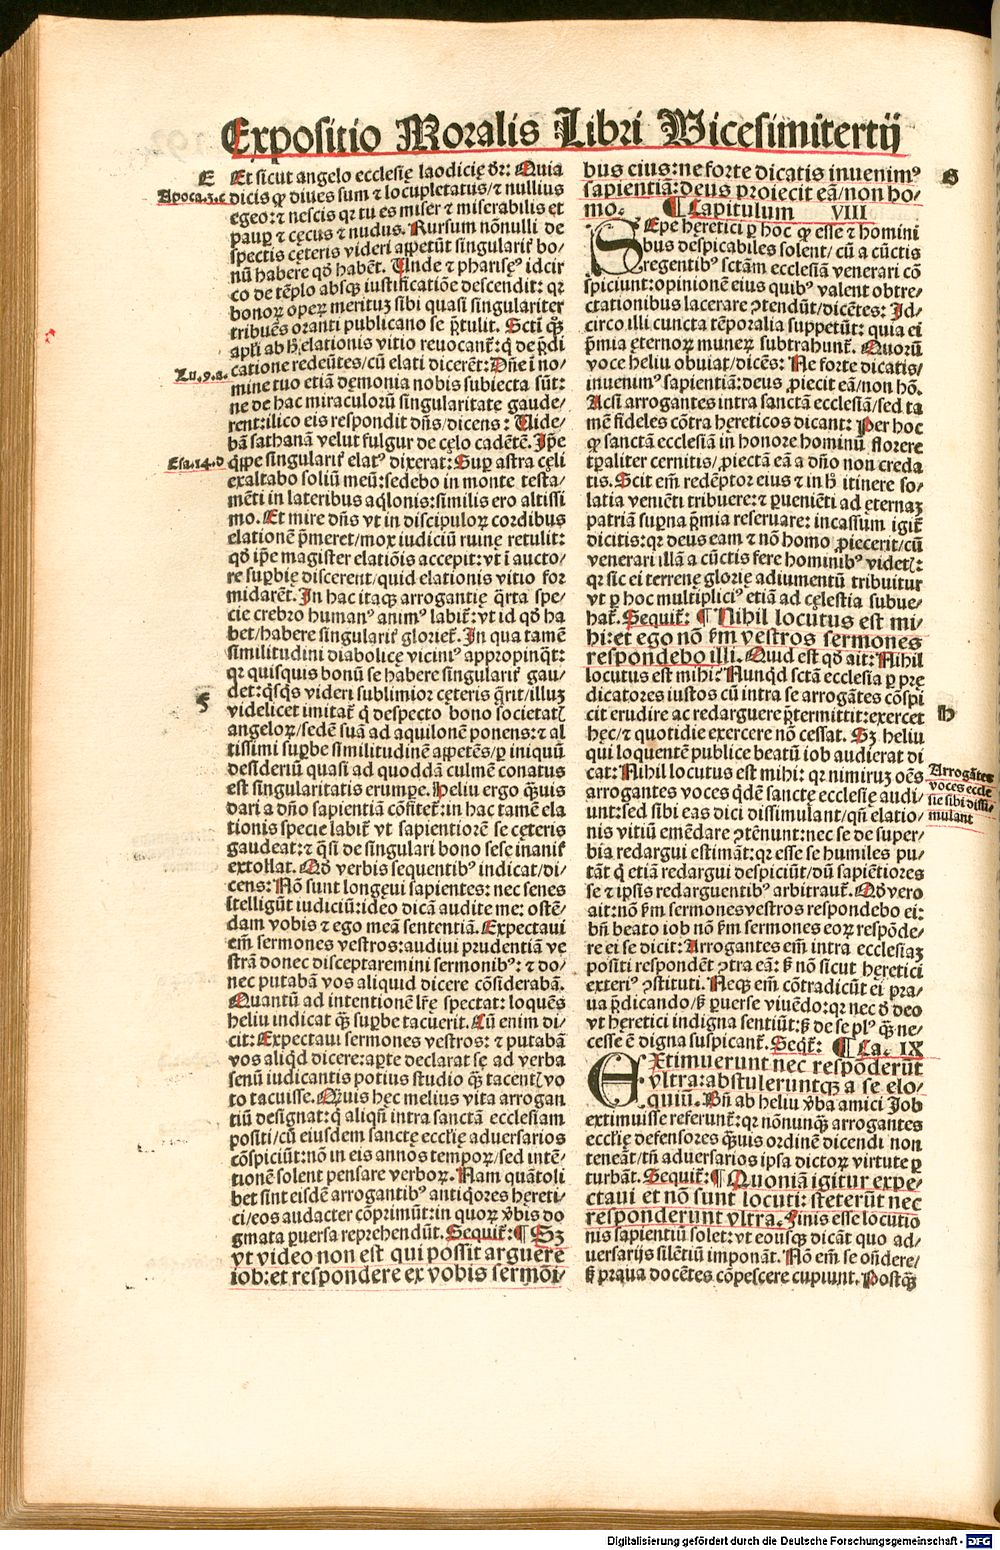 Expositio Moralis Libri Vicesimitertij
E
Et sicut angelo ecclesię laodicię dr̄: Quia
Apoca.3.c
dicis ꝙ diues sum ⁊ locupletatus/⁊ nullius
egeo:⁊ nescis qꝛ tu es miser ⁊ miserabilis et
paup̲ ⁊ cęcus ⁊ nudus. Rursum nōnulli de
spectis cęteris videri app̲etūt singularit̄ bo⸗
nū habere qd̄ habēt. Unde ⁊ phariseꝰ idcir
co de tēplo absqꝫ iustificatiōe descendit: qꝛ
bonoꝝ opeꝝ merituꝫ sibi quasi singulariter
tribuēs oranti publicano se p̄tulit. Scti qꝫ̄
apl̄i ab h̄ elationis vitio reuocant̄:q̇ de p̄di
catione redeūtes/cū elati dicerēt:Dn̄e ī no⸗
Lu.9.a.
mine tuo etiā dęmonia nobis subiecta sūt:
ne de hac miraculorū singularitate gaude⸗
rent:ilico eis respondit dn̄s/dicens: Uide⸗
bā sathanā velut fulgur de cęlo cadētē. Ip̄e
Esa.14.d
q̇ppe singularit̄ elatꝰ dixerat:Sup̲ astra cęli
exaltabo soliū meū:sedebo in monte testa⸗
mēti in lateribus aq̇lonis:similis ero altissi
mo. Et mire dn̄s vt in discipuloꝝ cordibus
elationē p̄meret/mox iudiciū ruinę retulit:
qd̄ ip̄e magister elatiōis accepit:vt ī aucto⸗
re sup̲bię discerent/quid elationis vitio for
midarēt. In hac itaqꝫ arrogantię q̄rta spe⸗
cie crebro humanꝰ animꝰ labit̄:vt id qd̄ ha
bet/habere singularit̄ gloriet̄. In qua tamē
similitudini diabolicę viciniꝰ appropinq̄t:
qꝛ quisquis bonū se habere singularit̄ gau⸗
F
det:q̇sq̇s videri sublimior cęteris q̄rit/illuꝫ
videlicet imitat̄ q̇ despecto bono societatꝭ
angeloꝝ/sedē suā ad aquilonē ponens:⁊ al
tissimi sup̲be similitudinē app̲etēs/p̲ iniquū
desideriū quasi ad quoddā culmē conatus
est singularitatis erump̲e. Heliu ergo q̄uis
dari a dn̄o sapientiā cōfitet̄:in hac tamē ela
tionis specie labit̄ vt sapientiorē se cęteris
gaudeat:⁊ q̄si de singulari bono sese inanit̄
extollat. Qd̄ verbis sequentibꝰ indicat/di⸗
cens:Nō sunt longęui sapientes: nec senes
ītelligūt iudiciū:ideo dicā audite me: ostē⸗
dam vobis ⁊ ego meā sententiā. Expectaui
em̄ sermones vestros:audiui prudentiā ve
strā donec disceptaremini sermonibꝰ: ⁊ do⸗
nec putabā vos aliquid dicere cōsiderabā.
Quantū ad intentionē lr̄ę spectat: loquēs
heliu indicat qꝫ̄ sup̲be tacuerit. Cū enim di⸗
cit: Expectaui sermones vestros: ⁊ putabā
vos aliq̇d dicere:ap̲te declarat se ad verba
senū iudicantis potius studio qꝫ̄ tacentꝭ vo
to tacuisse. Quis hęc melius vita arrogan
tiū designat:q̇ aliqn̄ intra sanctā ecclesiam
positi/cū eiusdem sanctę eccl̄ię aduersarios
cōspiciūt:nō in eis annos tempoꝝ/sed intē⸗
tionē solent pensare verboꝝ. Nam quātoli
bet sint eisdē arrogantibꝰ antiq̇ores hereti⸗
ci/eos audacter cōprimūt:in quoꝝ v̄bis do
gmata p̲uersa rep̲hendūt. Sequit̄: ¶ Sꝫ
vt video non est qui possit arguere
iob:et respondere ex vobis sermōi⸗
bus eius:ne forte dicatis inuenimꝰ
G
sapientiā:deus proiecit eā/non ho⸗
mo. ¶Capitulum VIII
SEpe hęretici p̲ hoc ꝙ esse ⁊ homini
bus despicabiles solent/cū a cūctis
regentibꝰ sctām ecclesiā venerari cō
spiciunt:opinionē eius quibꝰ valent obtre⸗
ctationibus lacerare ꝯtendūt/dicētes: Id⸗
circo illi cuncta tēporalia suppetūt: quia ei
p̄mia ęternoꝝ muneꝝ subtrahunt̄. Quorū
voce heliu obuiat/dicēs: Ne forte dicatis/
inuenimꝰ sapientiā:deus ꝓiecit eā/non hō.
Acsi arrogantes intra sanctā ecclesiā/sed ta
mē fideles cōtra hęreticos dicant: Per hoc
ꝙ sanctā ecclesiā in honore hominū florere
tp̄aliter cernitis/ꝓiectā eā a dn̄o non creda
tis. Scit em̄ redēptor eius ⁊ in h̄ itinere so⸗
latia veniēti tribuere:⁊ p̲ueniēti ad ęternaꝫ
patriā sup̲na p̄mia reseruare: incassum igit̄
dicitis:qꝛ deus eam ⁊ nō homo ꝓiecerit/cū
venerari illā a cūctis fere hominibꝰ videtꝭ:
qꝛ sic ei terrenę glorię adiumentū tribuitur
vt p̲ hoc multipliciꝰ etiā ad cęlestia subue⸗
hat̄. Sequit̄: ¶Nihil locutus est mi⸗
hi:et ego nō f̄m vestros sermones
respondebo illi. Quid est qd̄ ait:Nihil
locutus est mihi? Nunq̇d sctā ecclesia p̲ prę
dicatores iustos cū intra se arrogātes cōspi
cit erudire ac redarguere p̄termittit:exercet
H
hęc/⁊ quotidie exercere nō cessat. Sꝫ heliu
qui loquentē publice beatū iob audierat di
cat:Nihil locutus est mihi: qꝛ nimiruꝫ oēs
Arrogātes
voces eccle
sie sibi dissi⸗
mulant
arrogantes voces q̇dē sanctę ecclesię audi⸗
unt:sed sibi eas dici dissimulant/qn̄ elatio⸗
nis vitiū emēdare ꝯtēnunt:nec se de super⸗
bia redargui estimāt:qꝛ esse se humiles pu⸗
tāt q̇ etiā redargui despiciūt/dū sapiētiores
se ⁊ ipsis redarguentibꝰ arbitrant̄. Qd̄ vero
ait:nō f̄m sermones vestros respondebo ei:
bn̄ beato iob nō f̄m sermones eoꝝ respōde⸗
re ei se dicit: Arrogantes em̄ intra ecclesiaꝫ
positi respondēt ꝯtra eā: ß nō sicut hęretici
exteriꝰ ꝯstituti. Neqꝫ em̄ cōtradicūt ei pra⸗
ua p̄dicando/ß p̲uerse viuēdo:qꝛ nec d̄ deo
vt hęretici indigna sentiūt:ß de se plꝰ qꝫ̄ ne⸗
cesse ē digna suspicant̄. Seqt̄: ¶Ca. IX
EXtimuerunt nec respōderūt
vltra:abstuleruntqꝫ a se elo⸗
quiū. Bn̄ ab heliu v̄ba amici Job
extimuisse referunt̄:qꝛ nōnunqꝫ̄ arrogantes
eccl̄ię defensores q̄uis ordinē dicendi non
teneāt/tn̄ aduersarios ipsa dictoꝝ virtute p̲
turbāt. Sequit̄:¶Quoniā igitur expe⸗
ctaui et nō sunt locuti: steterūt nec
responderunt vltra. Finis esse locutio
nis sapientiū solet:vt eousqꝫ dicāt quo ad⸗
uersarijs silētiū imponāt. Nō em̄ se on̄dere/
ß praua docētes cōpescere cupiunt. Postqꝫ̄
Digitalisierung gefördert durch die Deutsche Forschungsgemeinschaft - DFG